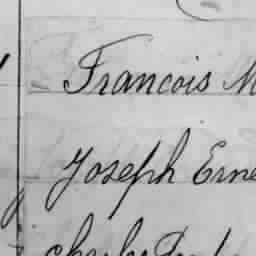 Francois M
Joseph Erne